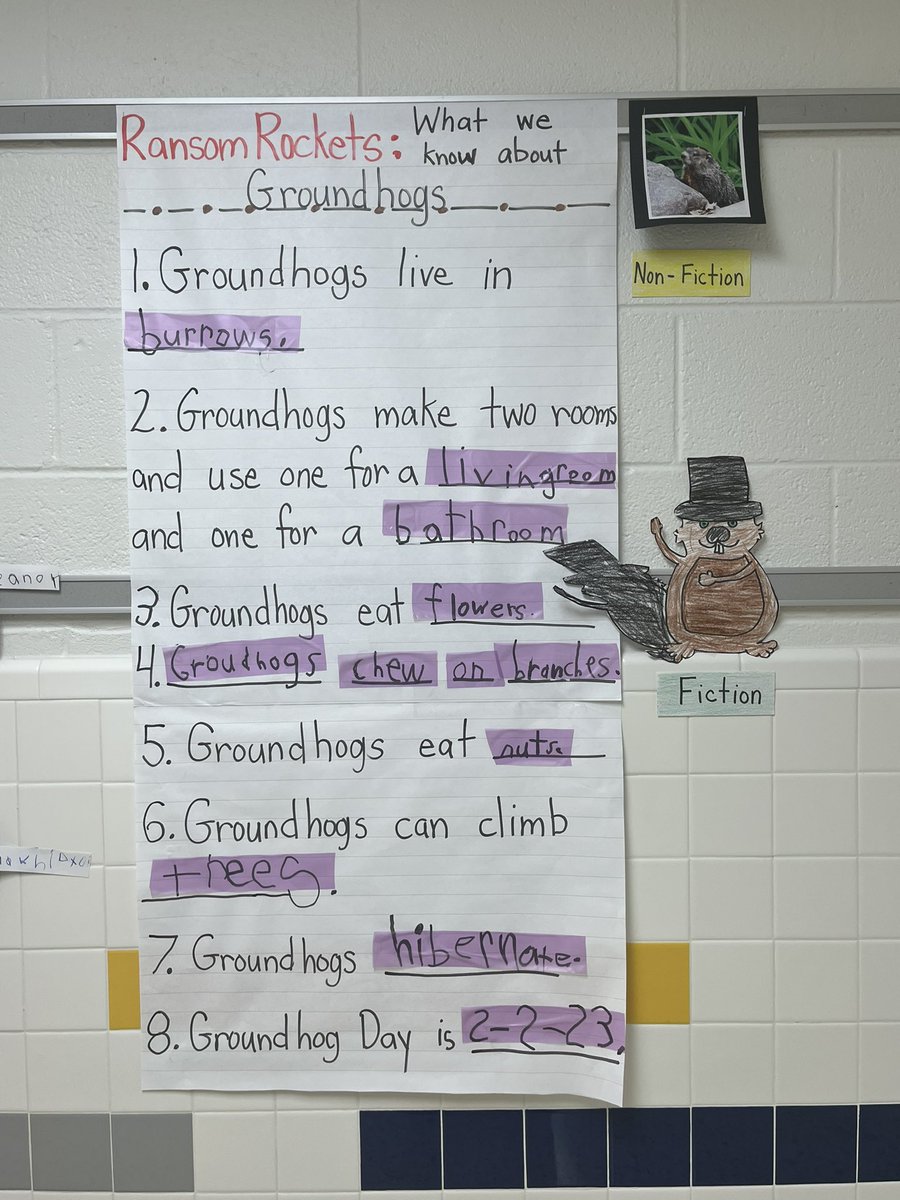 Ransom Rockets: What we
know about
Groundhogs
1. Groundhogs live in
burrows.
2. Groundhogs make two rooms
and use one for a livingroom
and one for a bathroom
3. Groundhogs eat flowers.
4. Groudhogs chew on branches.
5. Groundhogs eat nuts.
6. Groundhogs can climb
trees.
7. Groundhogs hibernate.
8. Groundhog Day is 2-2-23.
Non-Fiction
Fiction
eanor